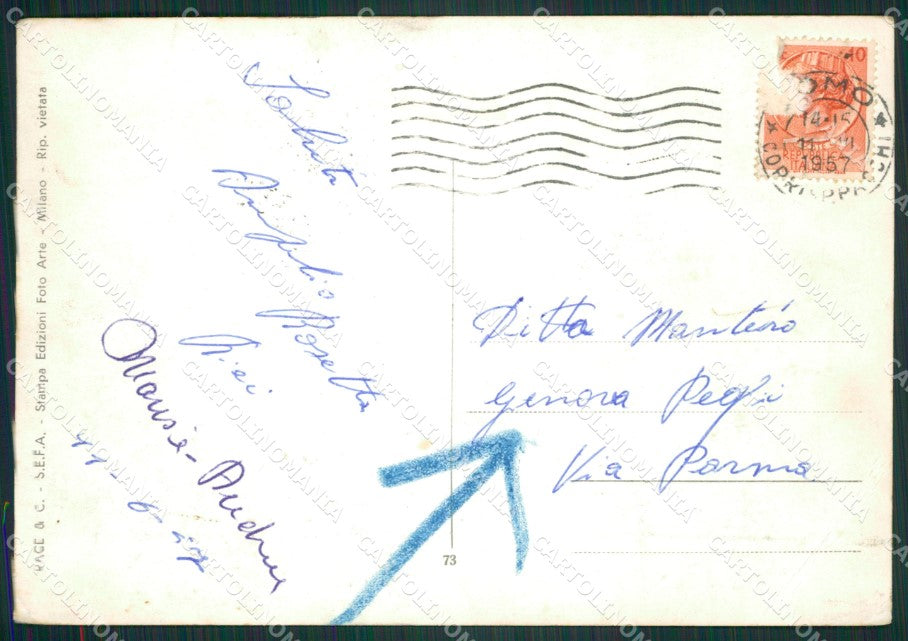 RACE & C. - S.E.F.A. - Stampa Edizioni Foto Arte - Milano - Rip. vietata
Saluti
Rosetta
Mansie - Andrew
11-6-57
10
COMO
14-15
11 VI
1957
CORR. APPR
Ditta Mantero
Genova Pegli
Via Parma
73
CARTOLINOMANIA